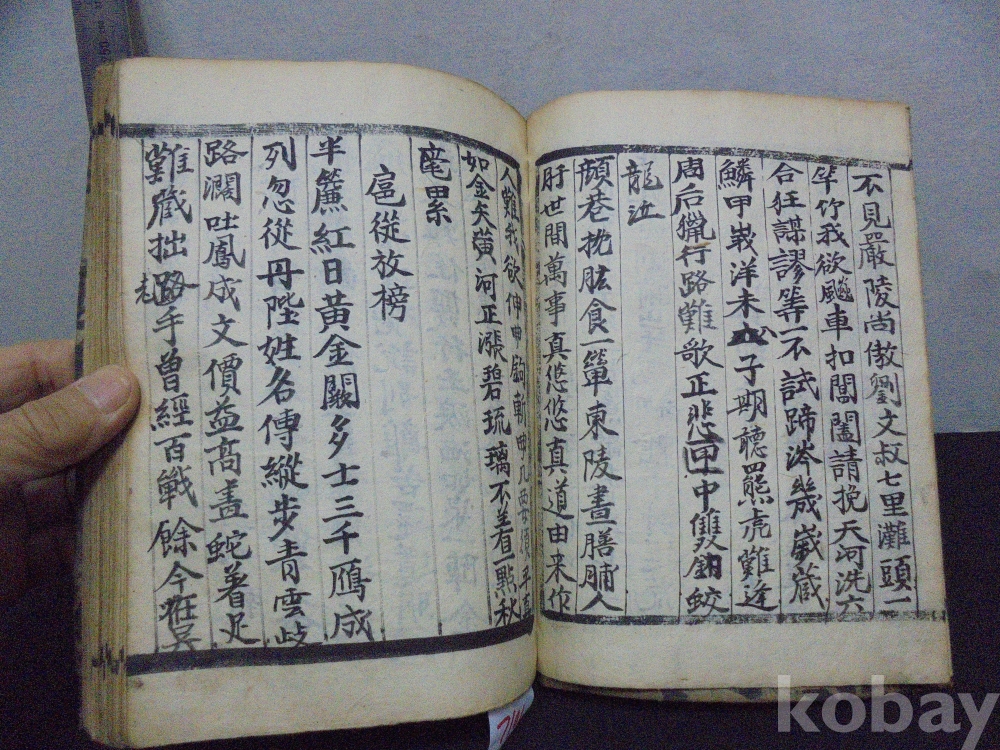 不見嚴陵尚傲劉文叔七里灘頭一
竿竹我欲飈車扣閶闔請挽天河洗六
合狂謀謬等一不試蹄涔幾歲蔵
鱗甲峩洋未 子期聽羆熊虎難逢
周后獵行路難歌正悲匣中雙 鮫
龍泣
顔巷枕肱食一簞東陵晝膳脯人
肝世間萬事真悠悠真道由来作
人難我欲伸申鉤斬申几要須平直
如金矢黄河正漲碧琉璃不着一點秋
毫累
扈從放榜
半簾紅日黄金闕多士三千鴈成
列忽從丹陛姓名傳縱步青雲歧
路濶吐鳳成文價益高盖蛇着足
難蔵拙老手曾經百戰餘今在吳
kobay